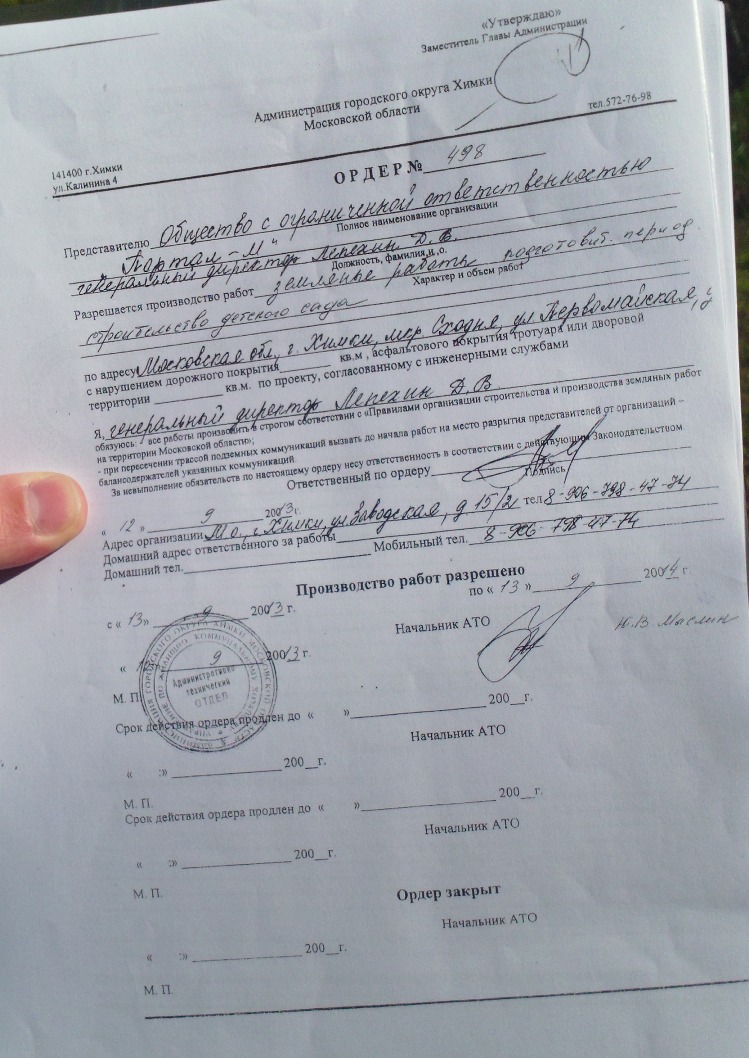 «Утверждаю»
Заместитель Главы Администрации
Администрация городского округа Химки
Московской области
тел.572-76-98
141400 г.Химки
ул.Калинина 4
ОРДЕР № 498
Представителю Общество с ограниченной ответственностью
Полное наименование организации
"Портал-М"
генеральный директор Лепехин Д.В.
Должность, фамилия,и.,о.
Разрешается производство работ земляные работы подготовит. период
Характер и объем работ
строительство детского сада
по адресу Московская обл., г. Химки, мкр. Сходня, ул. Первомайская,
с нарушением дорожного покрытия кв.м , асфальтового покрытия тротуара или дворовой
территории кв.м. по проекту, согласованному с инженерными службами
Я, генеральный директор Лепехин Д.В.
обязуюсь: все работы производить в строгом соответствии с «Правилами организации строительства и производства земляных работ
на территории Московской области»;
- при пересечении трассой подземных коммуникаций вызвать до начала работ на место разрытия представителей от организаций –
балансодержателей указанных коммуникаций.
За невыполнение обязательств по настоящему ордеру несу ответственность в соответствии с действующим Законодательством
Ответственный по ордеру
Подпись
« 12 » 9 2003г.
Адрес организации М.о., г.Химки, ул. Заводская, д 15/2 тел 8-906-798-47-74
Домашний адрес ответственного за работы
Домашний тел. Мобильный тел. 8-906-798-47-74
Производство работ разрешено
с « 13» 9 20013 г. по « 13 » 9 20014 г.
Начальник АТО Ю.В Маслин
« 9 20013 г.
Административно
технический
ОТДЕЛ
М. П.
Срок действия ордера продлен до « » 200 г.
Начальник АТО
« :» 200 г.
М. П.
Срок действия ордера продлен до « » 200 г.
Начальник АТО
« :» 200 г.
М. П.
Ордер закрыт
Начальник АТО
« :» 200 г.
М. П.